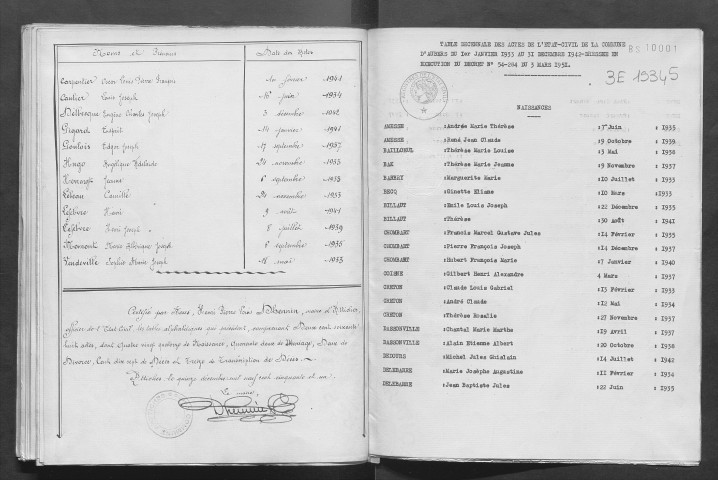 Noms et Prénoms Date des Actes
Carpentier Pierre 1941
Cautier Louis Joseph 16 juin 1934
Delbecque Eugène Charles Joseph 3 décembre 1942
Esprit 14 janvier 1941
Joseph 17 septembre 1937
Hugo Angélique Adélaïde 24 novembre 1933
6 septembre 1933
Lebeau Camille 24 novembre 1933
Lefebvre Henri 9 août 1941
Lefebvre Henri Joseph 8 juillet 1939
Joseph 6 septembre 1936
Vandeville Sophie Joseph 18 mai 1933
Certifié par Nous, Pierre Louis Dhennin, maire d'Attiches,
officier de l'Etat Civil, les tables alphabétiques qui précèdent, comprenant Deux cent soixante
huit actes, dont quatre vingt de Naissances, quarante deux de Mariage, Deux de
Divorce, Cent dix sept de Décès et Treize de Transcription de Décès.
Attiches, le quinze décembre mil neuf cent cinquante et un
Le maire,
TABLE DECENNALE DES ACTES DE L'ETAT-CIVIL DE LA COMMUNE
D'AUBERS DU 1er JANVIER 1933 AU 31 DECEMBRE 1942-DRESSEE EN
EXECUTION DU DECRET N° 51-284 DU 3 MARS 1951.
BS 10001
3E 19345
NAISSANCES
AMESSE :Andrée Marie Thérèse :7 Juin : 1933
AMESSE :René Jean Claude :9 Octobre : 1939
BAILLOEUL :Thérèse Marie Louise :3 Mai : 1938
BAK :Thérèse Marie Jeanne :9 Novembre : 1937
BARBRY :Marguerite Marie :10 Juillet : 1933
BECQ :Ginette Eliane :10 Mars : 1933
BILLAUT :Emile Louis Joseph :22 Décembre : 1935
BILLAUT :Thérèse :30 Août : 1941
CHOMBART :Francis Marcel Gustave Jules :14 Février : 1935
CHOMBART :Pierre François Joseph :14 Décembre : 1937
CHOMBART :Hubert François Marie :7 Janvier : 1940
COISNE :Gilbert Henri Alexandre :4 Mars : 1937
CRETON :Claude Louis Gabriel :13 Février : 1933
CRETON :André Claude :12 Mai : 1934
CRETON :Thérèse Rosalie :27 Novembre : 1937
DASSONVILLE :Chantal Marie Marthe :19 Avril : 1937
DASSONVILLE :Alain Etienne Albert :20 Octobre : 1938
DECOURS :Michel Jules Ghislain :14 Juillet : 1942
DELEBARRE :Marie Josèphe Augustine :11 Février : 1934
DELEBARRE :Jean Baptiste Jules :22 Juin : 1935